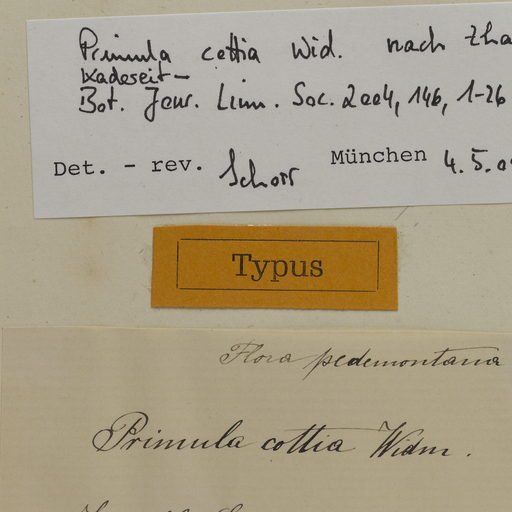 Primula cottia Wid. nach Zha
Kadereit -
Bot. Jour. Linn. Soc. 2004, 146, 1-26
Det. - rev. Schorr München 4.5.0
Typus
Flora pedemontana
Primula cottia Widm.